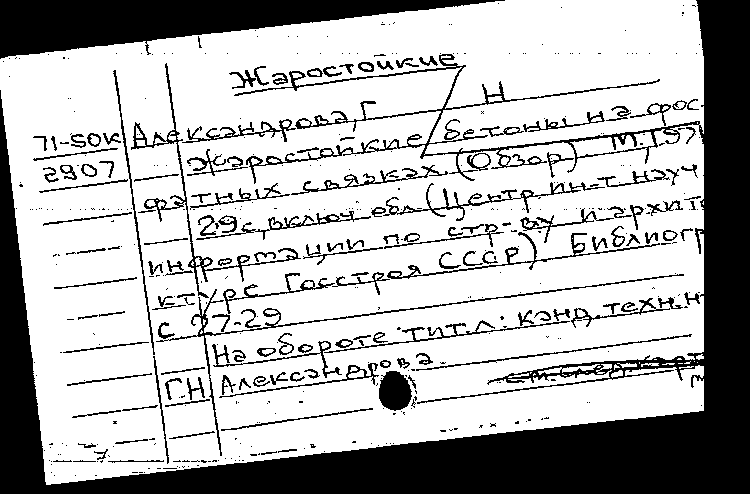 Жаростойкие
71-50К Александрова, Г Н
2907 Жаростойкие бетоны на фос-
фатных связках. (Обзор) М., 1971
29с, включ обл (Центр ин-т науч
информации по стр-ву и архите
ктуре Госстроя СССР) Библиогр
с 27-29
На обороте тит.л: канд. техн. н
ГН Александрова.
см. след. карт